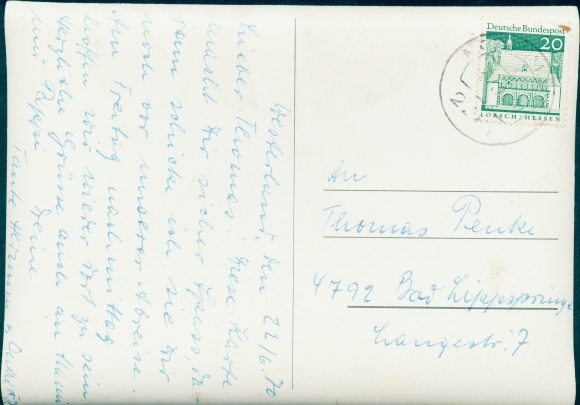 Westerland, den 22/6.70.
Lieber Thomas! Diese Karte
macht Dir sicher Spass, da-
rum schicke ich sie Dir
noch vor unserer Abreise.
Am Freitag nachmittag
hoffen wir wieder dort zu sein
Herzliche Grüsse auch an Mami
und Pappi Deine
Tante Hermin u.
Deutsche Bundespost
20
LORSCH/HESSEN
An
Thomas Penke
4792 Bad Lippspringe
Langestr. 7